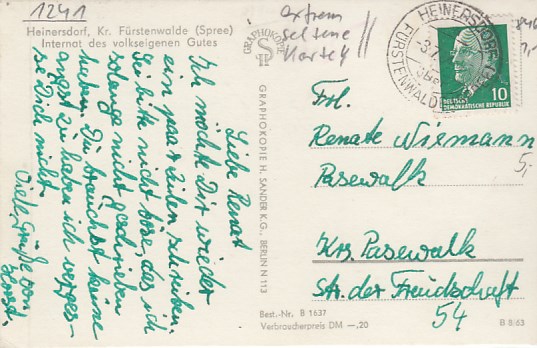 1241
Heinersdorf, Kr. Fürstenwalde (Spree)
Internat des volkseigenen Gutes
Liebe Renat
Ich möchte Dir wieder
ein paar Zeilen schreiben.
Sei bitte nicht böse, das ich
solange nicht geschrieben
habe. Du brauchst keine
angst zu haben ich verges-
se Dich nicht
Viele Grüße von
Horst.
GRAPHOKOPIE
GRAPHOKOPIE H. SANDER K.G., BERLIN N 113
extrem
seltene
Karte
HEINERSDORF
FÜRSTENWALDE
DEUTSCHE
DEMOKRATISCHE REPUBLIK
10
Frl.
Renate Wiemann
5,-
Pasewalk
Krs. Pasewalk
Str. der Freudschaft
54
Best.-Nr. B 1637
Verbraucherpreis DM —,20
B 8/63